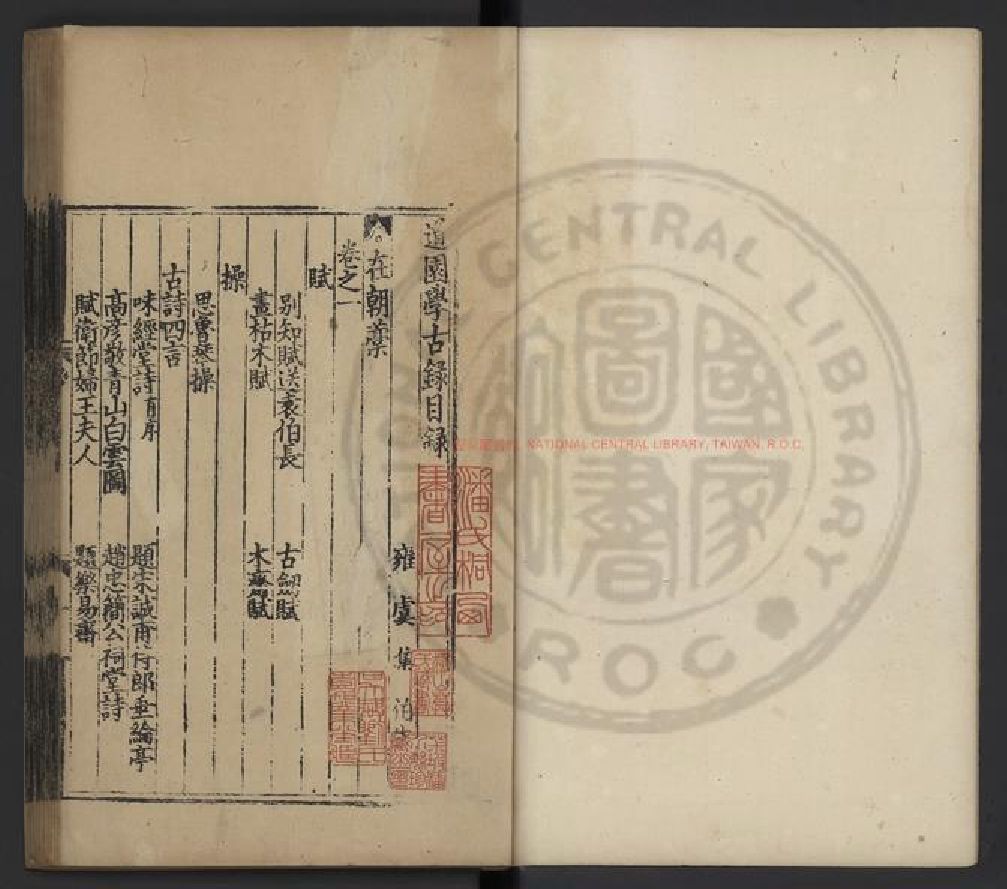 道園學古錄目錄
雍虞集伯生
在朝藁
卷之一
賦
別知賦送袁伯長 古劒賦
畫枯木賦 木齋賦
操
思魯琴操
古詩四言
味經堂詩有序 題朱誠甫侍郎垂綸亭
高彥敬青山白雲圖 趙忠簡公祠堂詩
賦衛節婦王夫人 題樂易齋
NATIONAL CENTRAL LIBRARY, TAIWAN, R.O.C.
CENTRAL LIBRARY
ROC
國家圖書